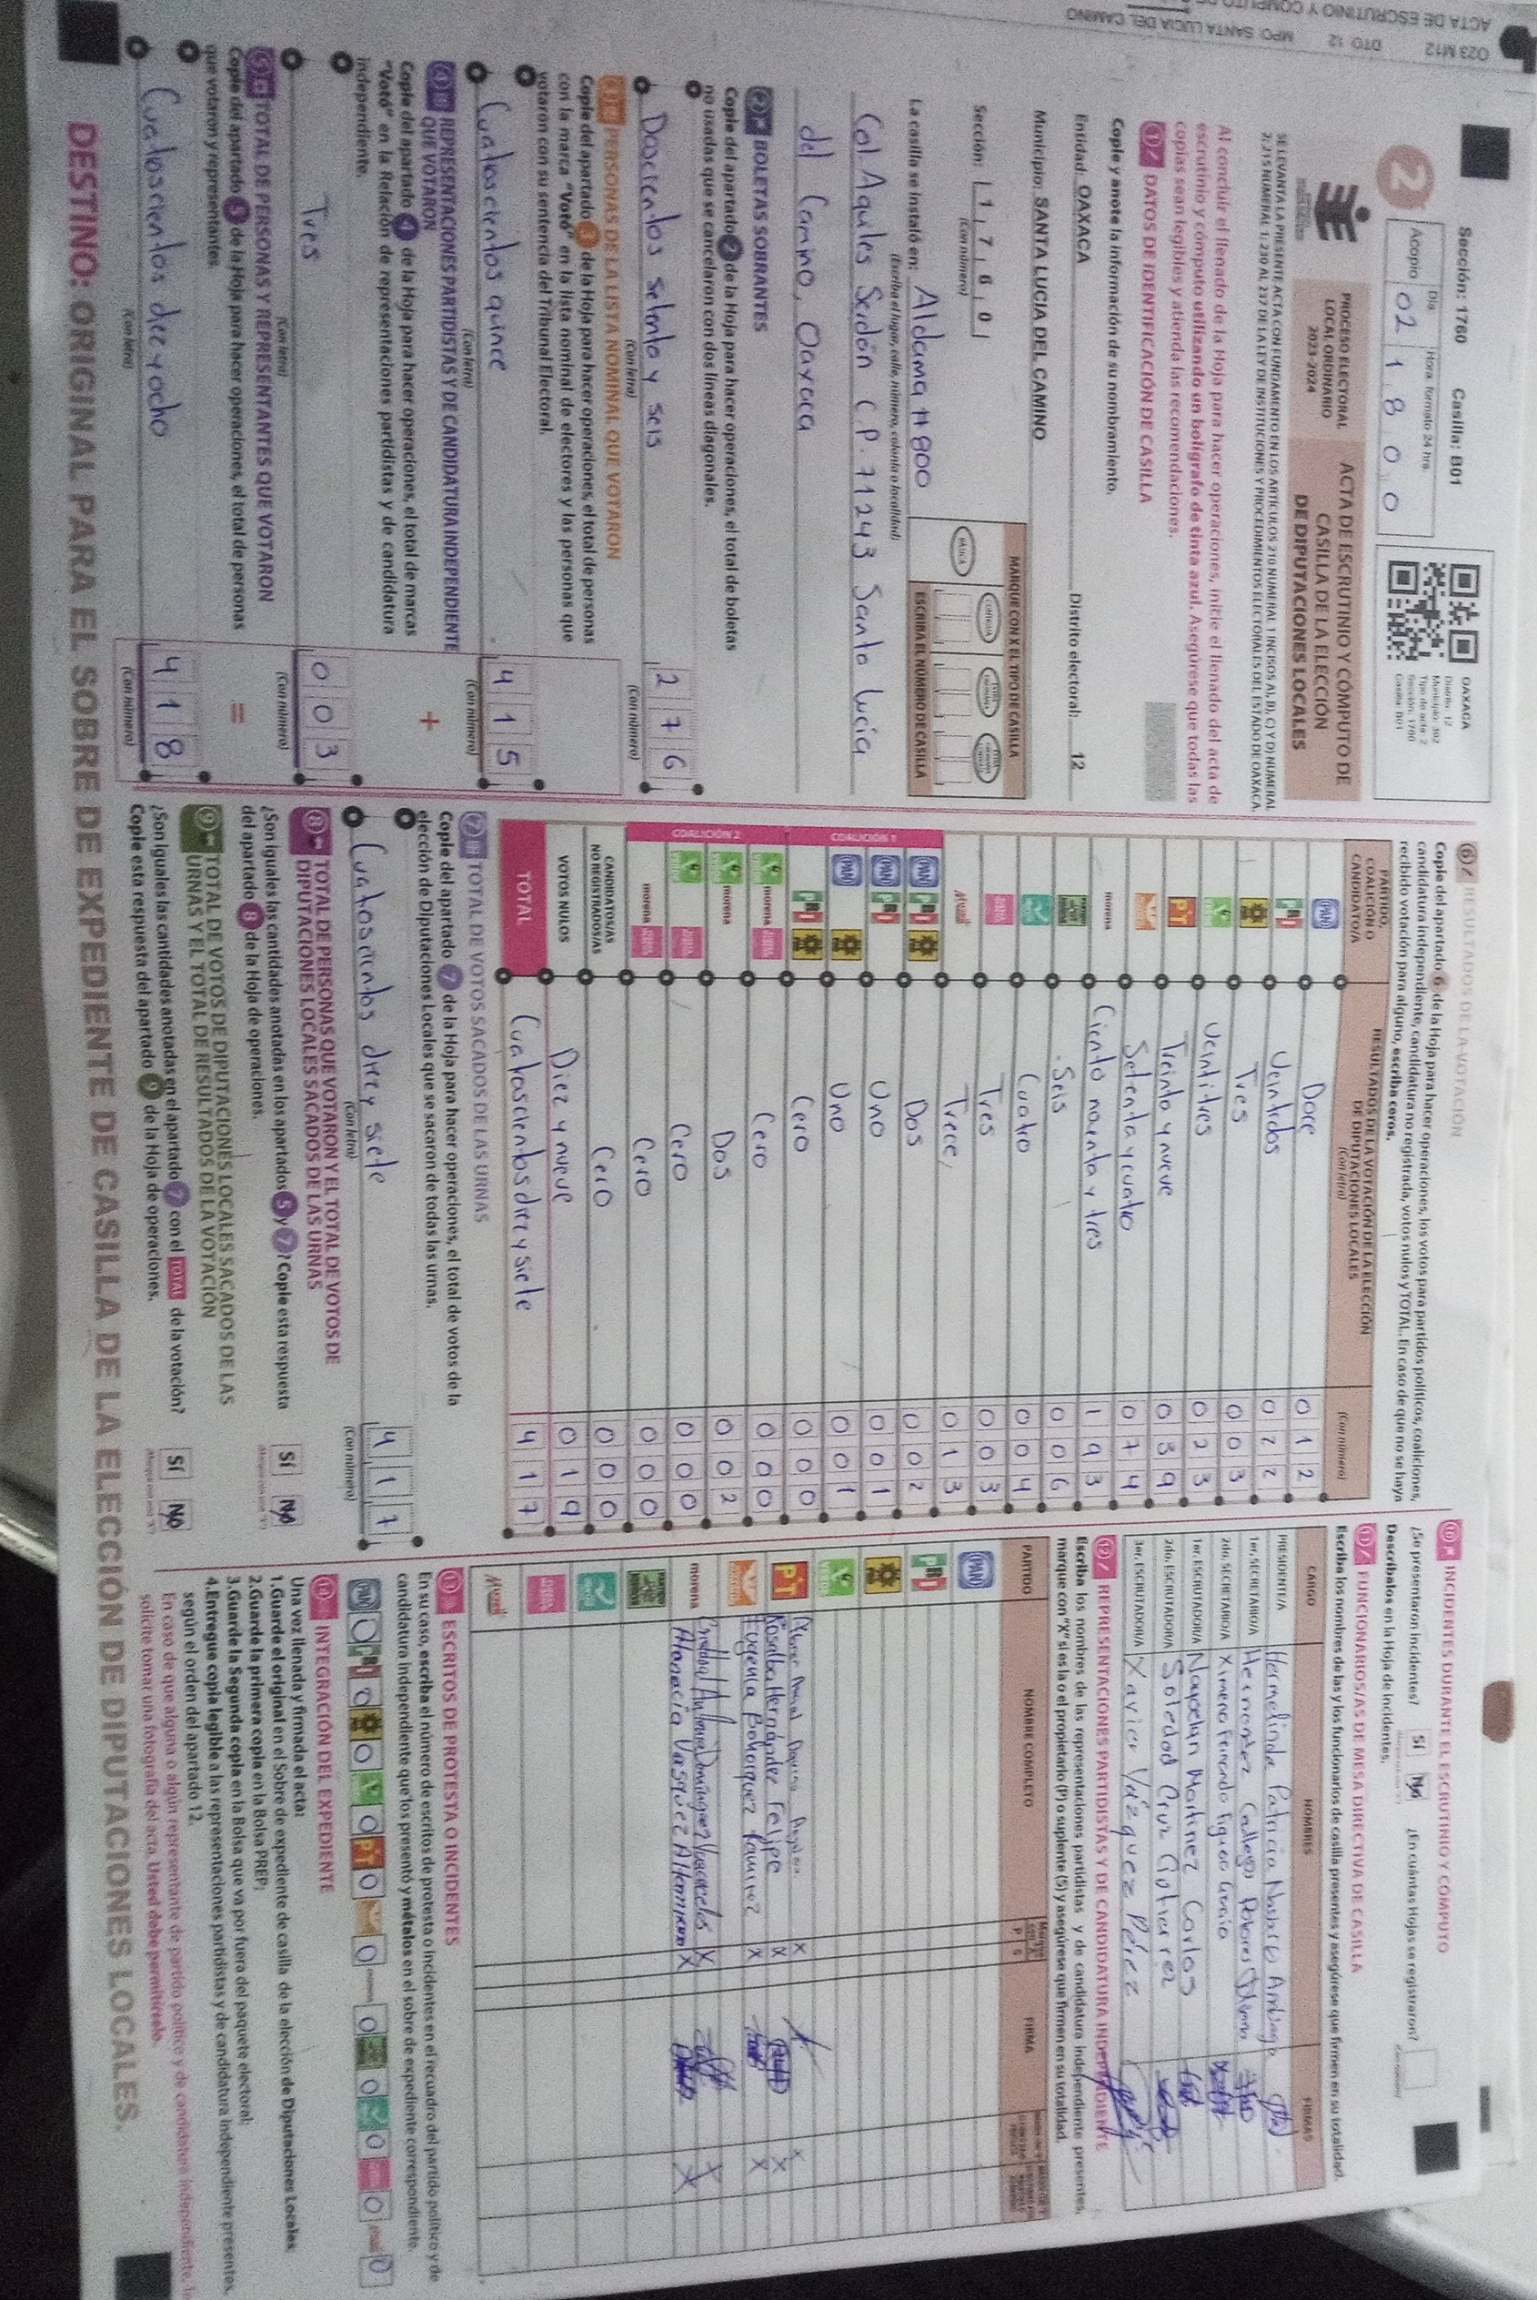 Sección: 1760 Casilla: B01
2
Acopio
Día
Hora: formato 24 hrs.
02 18 00
OAXACA
Distrito: 12
Municipio: 392
Tipo de acta: 2
Sección: 1760
Casilla: B01
PROCESO ELECTORAL
LOCAL ORDINARIO
2023-2024
ACTA DE ESCRUTINIO Y CÓMPUTO DE
CASILLA DE LA ELECCIÓN
DE DIPUTACIONES LOCALES
SE LEVANTA LA PRESENTE ACTA CON FUNDAMENTO EN LOS ARTÍCULOS 210 NUMERAL 1 INCISOS A), B), C) Y D) NUMERAL
2; 215 NUMERAL 1; 230 AL 237 DE LA LEY DE INSTITUCIONES Y PROCEDIMIENTOS ELECTORALES DEL ESTADO DE OAXACA.
Al concluir el llenado de la Hoja para hacer operaciones, inicie el llenado del acta de
escrutinio y cómputo utilizando un bolígrafo de tinta azul. Asegúrese que todas las
copias sean legibles y atienda las recomendaciones.
1 DATOS DE IDENTIFICACIÓN DE CASILLA
Copie y anote la información de su nombramiento.
Entidad: OAXACA Distrito electoral: 12
Municipio: SANTA LUCIA DEL CAMINO
Sección: 1 7 6 0
(Con número)
MARQUE CON X EL TIPO DE CASILLA
BÁSICA
CONTIGUA
ESCRIBA EL NÚMERO DE CASILLA
La casilla se instaló en: Aldama #800
(Escriba el lugar, calle, número, colonia o localidad)
Col. Aquiles Serdán C.P. 71243 Santa Lucia
del Camino, Oaxaca
2 BOLETAS SOBRANTES
Copie del apartado 2 de la Hoja para hacer operaciones, el total de boletas
no usadas que se cancelaron con dos líneas diagonales.
Doscientos setenta y seis 2 7 6
(Con letra) (Con número)
3 PERSONAS DE LA LISTA NOMINAL QUE VOTARON
Copie del apartado 3 de la Hoja para hacer operaciones, el total de personas
con la marca "Votó" en la lista nominal de electores y las personas que
votaron con su sentencia del Tribunal Electoral.
Cuatroscientos quince 4 1 5
(Con letra) (Con número)
4 REPRESENTACIONES PARTIDISTAS Y DE CANDIDATURA INDEPENDIENTE
QUE VOTARON
Copie del apartado 4 de la Hoja para hacer operaciones, el total de marcas
"Votó" en la Relación de representaciones partidistas y de candidatura
independiente.
+
Tres 0 0 3
(Con letra) (Con número)
5 TOTAL DE PERSONAS Y REPRESENTANTES QUE VOTARON
Copie del apartado 5 de la Hoja para hacer operaciones, el total de personas
que votaron y representantes.
=
Cuatroscientos diez y ocho 4 1 8
(Con letra) (Con número)
6 RESULTADOS DE LA VOTACIÓN
Copie del apartado 6 de la Hoja para hacer operaciones, los votos para partidos políticos, coaliciones,
candidatura independiente, candidatura no registrada, votos nulos y TOTAL. En caso de que no se haya
recibido votación para alguno, escriba ceros.
PARTIDO,
COALICIÓN O
CANDIDATO/A
RESULTADOS DE LA VOTACIÓN DE LA ELECCIÓN
DE DIPUTACIONES LOCALES
(Con letra) (Con número)
PAN Doce 0 1 2
PRI Veintidos 0 2 2
PRD Tres 0 0 3
VERDE Veintitres 0 2 3
PT Treinta y nueve 0 3 9
Setenta y cuatro 0 7 4
morena Ciento noventa y tres 1 9 3
Seis 0 0 6
Cuatro 0 0 4
Tres 0 0 3
Mujer Trece 0 1 3
COALICIÓN 1
PAN PRI PRD Dos 0 0 2
PAN PRI Uno 0 0 1
PAN PRD Uno 0 0 1
PRI PRD Cero 0 0 0
COALICIÓN 2
VERDE morena Cero 0 0 0
VERDE morena Dos 0 0 2
VERDE Cero 0 0 0
morena Cero 0 0 0
CANDIDATOS/AS
NO REGISTRADOS/AS Cero 0 0 0
VOTOS NULOS Diez y nueve 0 1 9
TOTAL Cuatroscientos diez y siete 4 1 7
7 TOTAL DE VOTOS SACADOS DE LAS URNAS
Copie del apartado 7 de la Hoja para hacer operaciones, el total de votos de la
elección de Diputaciones Locales que se sacaron de todas las urnas.
Cuatroscientos diez y siete 4 1 7
(Con letra) (Con número)
8 TOTAL DE PERSONAS QUE VOTARON Y EL TOTAL DE VOTOS DE
DIPUTACIONES LOCALES SACADOS DE LAS URNAS
¿Son iguales las cantidades anotadas en los apartados 5 y 7? Copie esta respuesta
del apartado 8 de la Hoja de operaciones.
SÍ NO
9 TOTAL DE VOTOS DE DIPUTACIONES LOCALES SACADOS DE LAS
URNAS Y EL TOTAL DE RESULTADOS DE LA VOTACIÓN
¿Son iguales las cantidades anotadas en el apartado 7 con el TOTAL de la votación?
Copie esta respuesta del apartado 9 de la Hoja de operaciones.
SÍ NO
10 INCIDENTES DURANTE EL ESCRUTINIO Y CÓMPUTO
¿Se presentaron incidentes? SÍ NO ¿En cuántas Hojas se registraron?
Descríbalos en la Hoja de Incidentes.
11 FUNCIONARIOS/AS DE MESA DIRECTIVA DE CASILLA
Escriba los nombres de las y los funcionarios de casilla presentes y asegúrese que firmen en su totalidad.
CARGO NOMBRES FIRMAS
PRESIDENTE/A Hermelinda Patricia
1er. SECRETARIO/A Hernandez
2do. SECRETARIO/A Ximena Fernanda
1er. ESCRUTADOR/A Nayelyn Martinez Carlos
2do. ESCRUTADOR/A Soledad Cruz Gutierrez
3er. ESCRUTADOR/A Xavier Vázquez Pérez
12 REPRESENTACIONES PARTIDISTAS Y DE CANDIDATURA INDEPENDIENTE
Escriba los nombres de las representaciones partidistas y de candidatura independiente presentes,
marque con "X" si es la o el propietario (P) o suplente (S) y asegúrese que firmen en su totalidad.
PARTIDO NOMBRE COMPLETO P S FIRMA
PAN
PRI
PRD
VERDE
PT
Rosalba Hernández Felipe X X
Eugenia Bohorquez Ramirez X X
morena X X
Atanacia Vasquez X X
Mujer
13 ESCRITOS DE PROTESTA O INCIDENTES
En su caso, escriba el número de escritos de protesta o incidentes en el recuadro del partido político y de
candidatura independiente que los presentó y métalos en el sobre de expediente correspondiente.
PAN 0 PRI 0 PRD 0 VERDE 0 PT 0 0 morena 0 0 0 0 0
14 INTEGRACIÓN DEL EXPEDIENTE
Una vez llenada y firmada el acta:
1.Guarde el original en el Sobre de expediente de casilla de la elección de Diputaciones Locales;
2.Guarde la primera copia en la Bolsa PREP;
3.Guarde la Segunda copia en la Bolsa que va por fuera del paquete electoral;
4.Entregue copia legible a las representaciones partidistas y de candidatura independiente presentes,
según el orden del apartado 12.
En caso de que alguna o algún representante de partido político y de candidatura independiente, le
solicite tomar una fotografía del acta. Usted debe permitírselo.
DESTINO: ORIGINAL PARA EL SOBRE DE EXPEDIENTE DE CASILLA DE LA ELECCIÓN DE DIPUTACIONES LOCALES.
O23 M12 DTO: 12 MPO: SANTA LUCIA DEL CAMINO
ACTA DE ESCRUTINIO Y